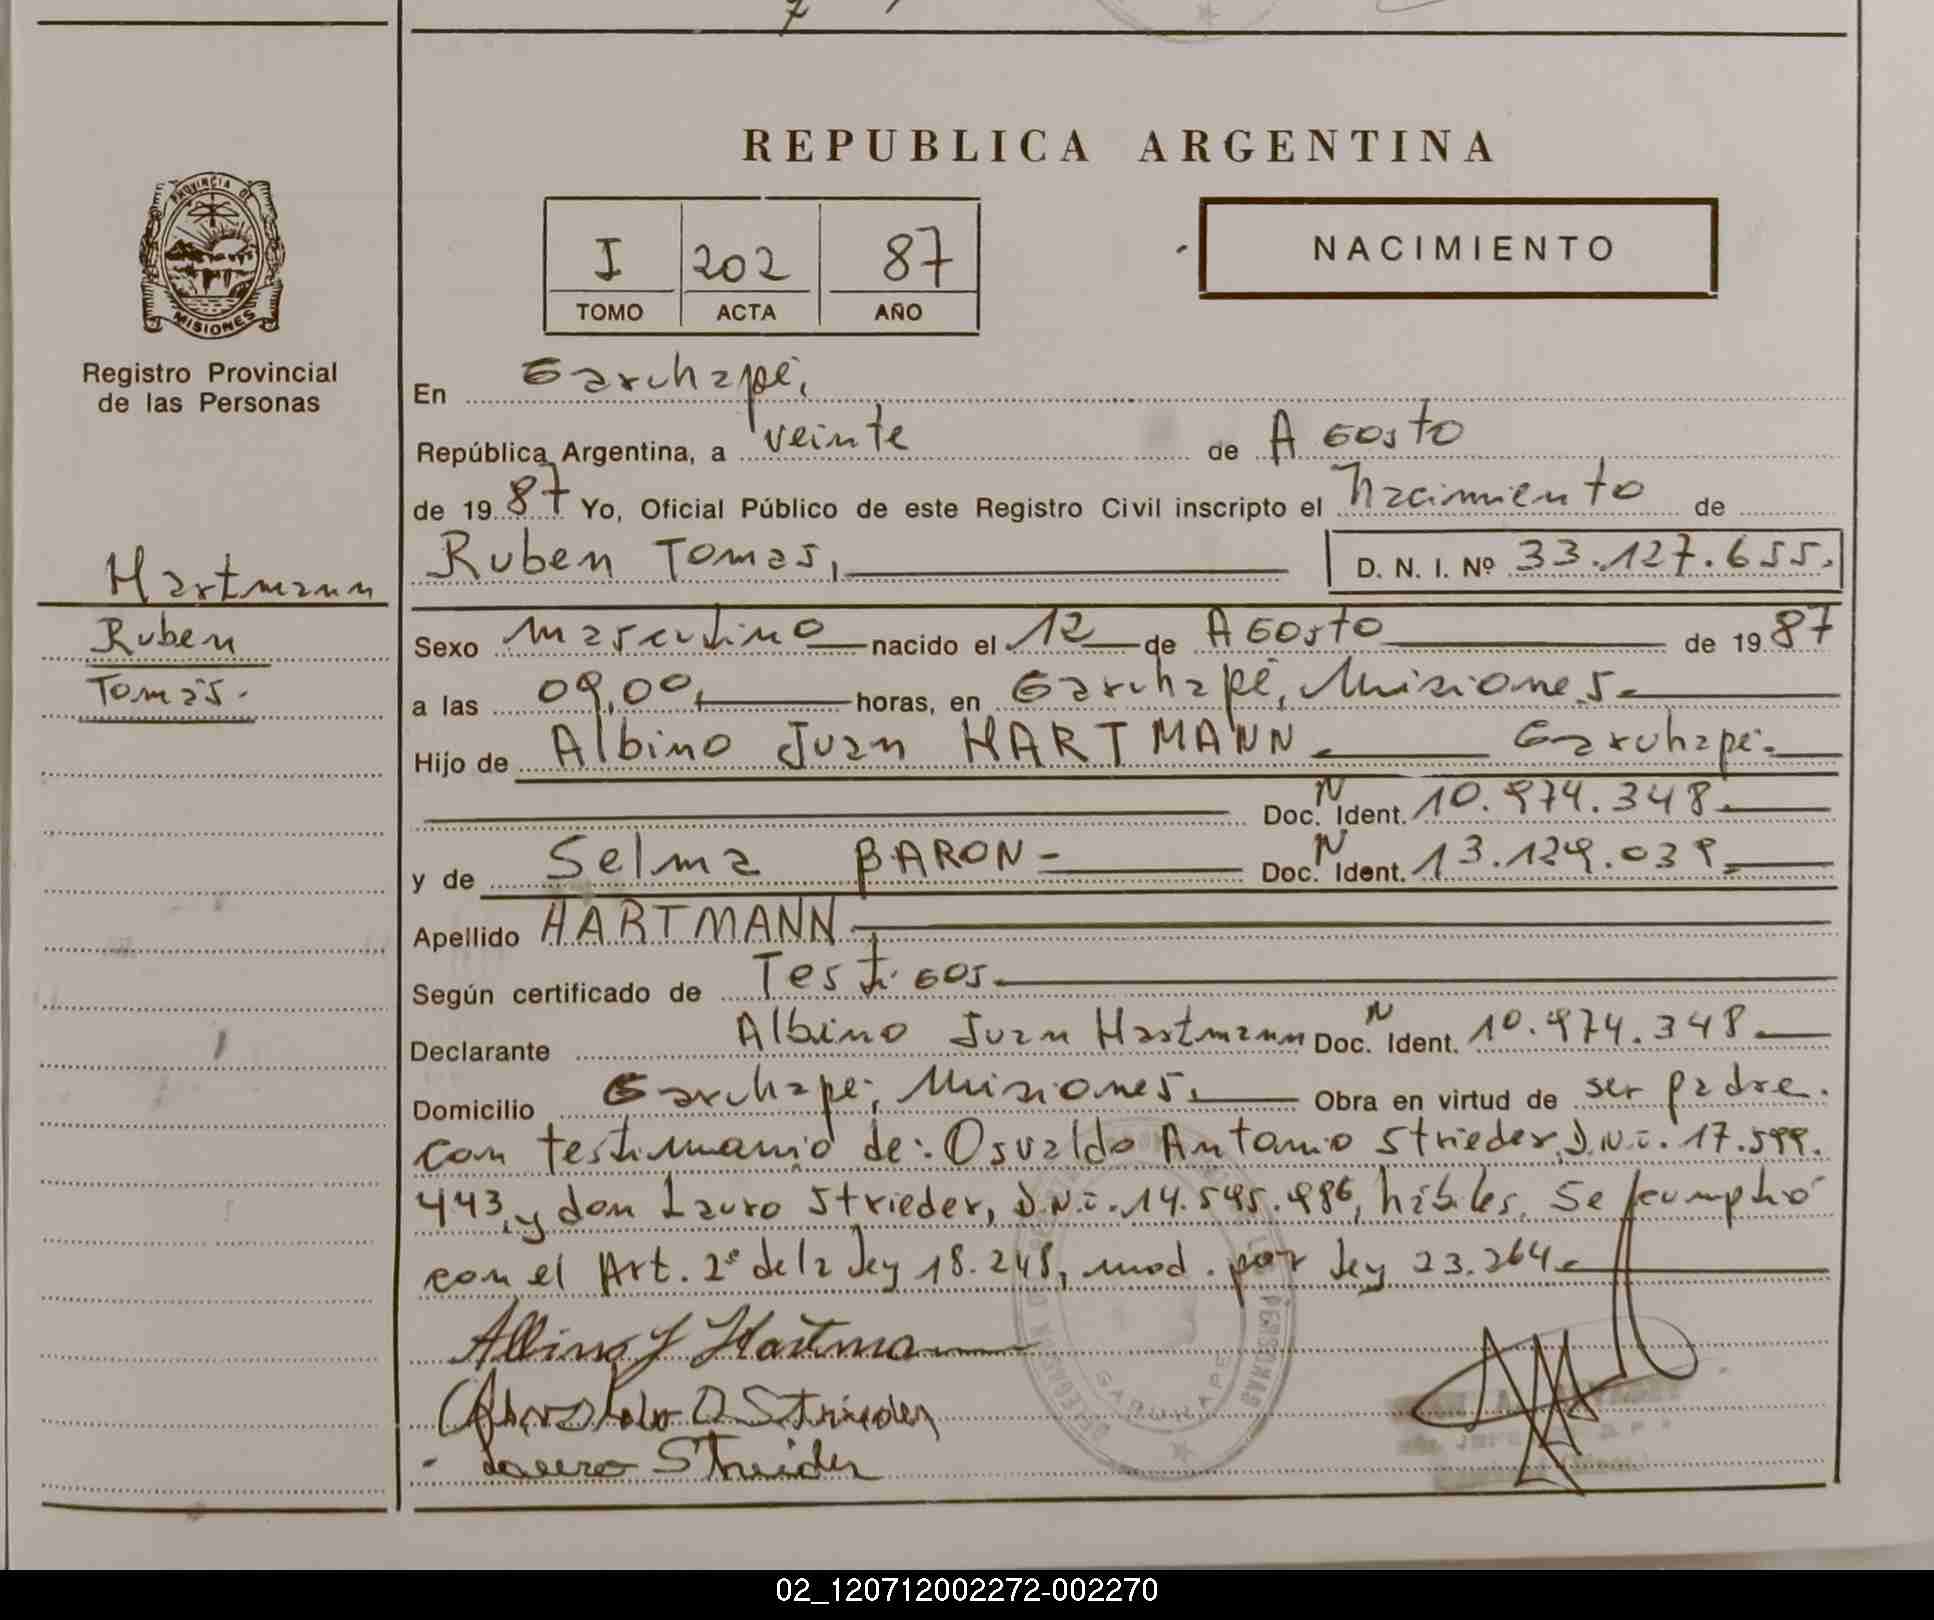 REPUBLICA ARGENTINA
PROVINCIA DE
MISIONES
Registro Provincial
de las Personas
I 202 87
TOMO ACTA AÑO
NACIMIENTO
En Garuhapé,
República Argentina, a veinte de Agosto
de 19 87 Yo, Oficial Público de este Registro Civil inscripto el Nacimiento de
Hartmann
Ruben Tomas, D. N. I. Nº 33.127.655.
Ruben
Tomás.
Sexo masculino nacido el 12 de Agosto de 19 87
a las 09,00, horas, en Garuhapé, Misiones.
Hijo de Albino Juan HARTMANN. Garuhapé.
Doc. N Ident. 10.974.348.
y de Selma BARON - Doc. N Ident. 13.129.039.
Apellido HARTMANN
Según certificado de Testigos.
Declarante Albino Juan Hartmann Doc. N Ident. 10.974.348.
Domicilio Garuhapé, Misiones. Obra en virtud de ser padre.
con testimonio de: Osvaldo Antonio Strieder, D.N.i. 17.599.
443, y don Lauro Strieder, D.N.i. 14.595.986, hábiles. Se cumplió
con el Art. 2º de la Ley 18.248, mod. por Ley 23.264.
Albino J Hartmann
O Strieder
Lauro Strieder
PERSONAS
GARUHAPE
02_120712002272-002270